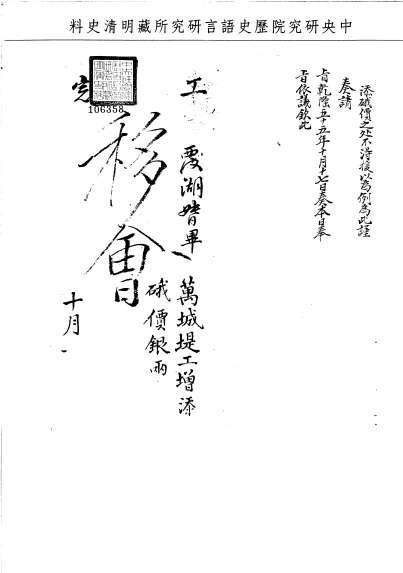 中央研究院歷史語言研究所藏明清史料
添硪價之處不得復以為例為此謹
奏請
旨乾隆五十五年十月十七日奏本日奉
旨依議欽此
工
覆湖督畢
萬城堤工增添
硪價銀兩
移會
完
106358
十月